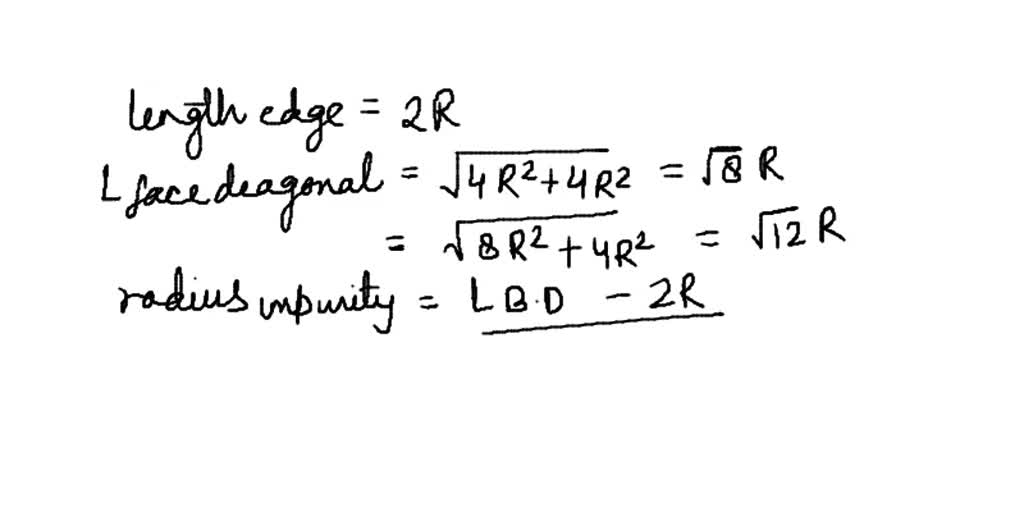 length edge = 2R
L face deagonal = √4R²+4R² = √8 R
= √8R²+4R² = √12 R
radius impurity = L B.D - 2R